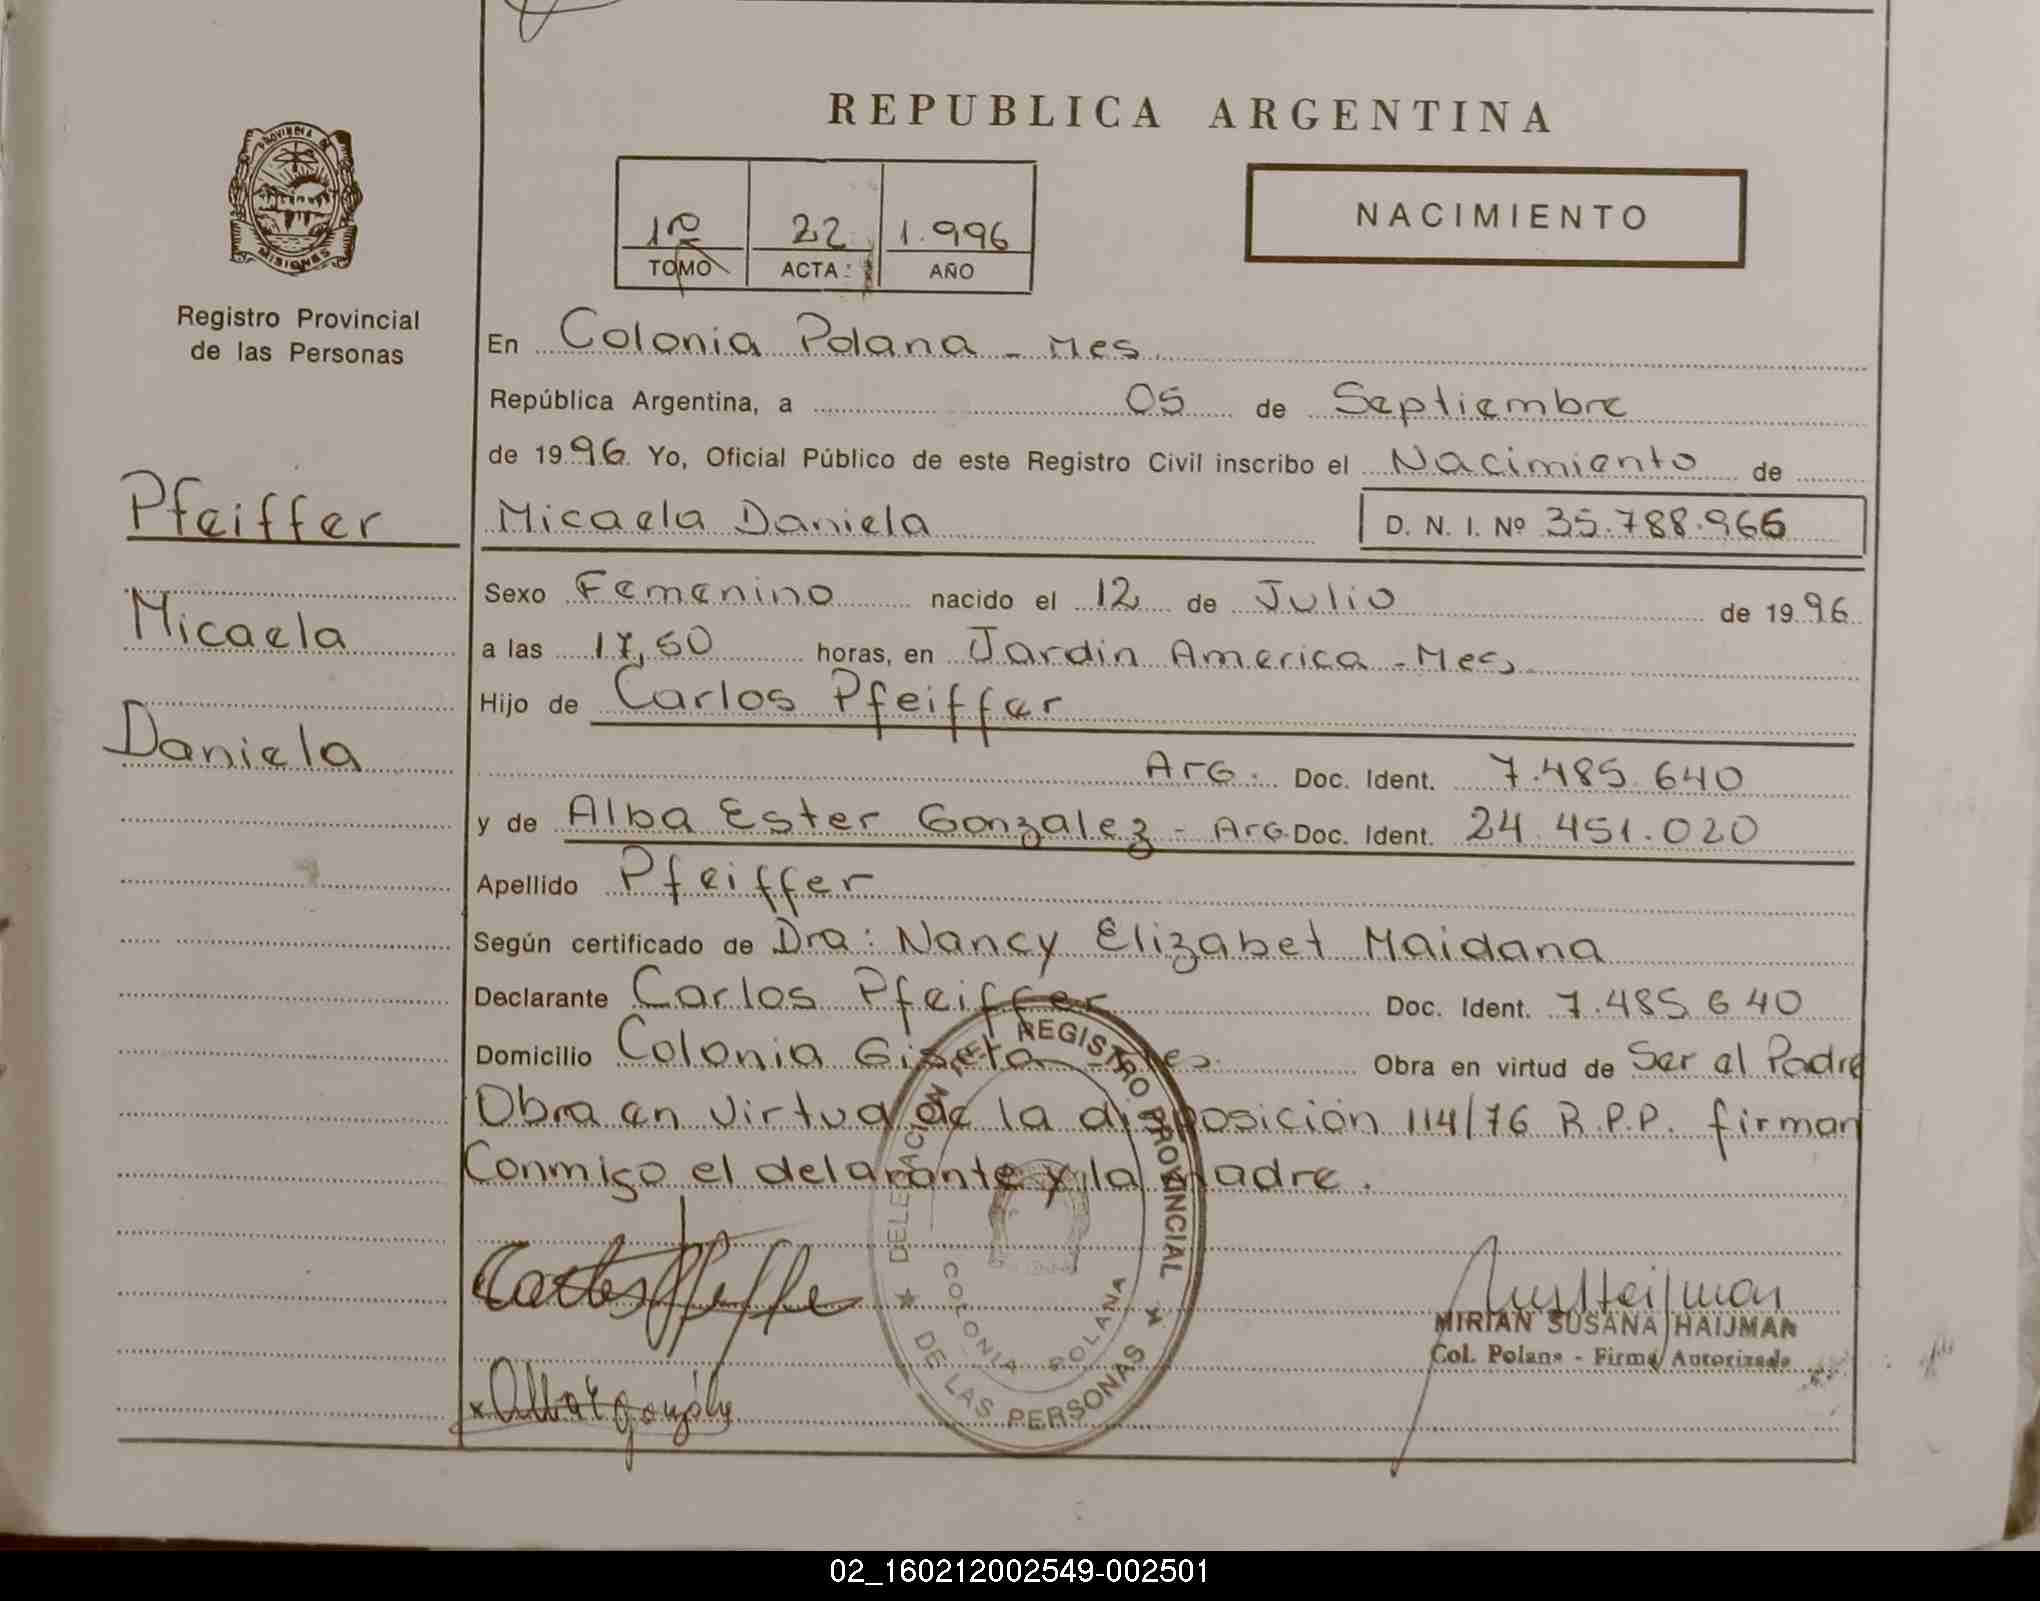 REPUBLICA ARGENTINA
PROVINCIA DE
MISIONES
Registro Provincial
de las Personas
1º 22 1.996
TOMO ACTA AÑO
NACIMIENTO
En Colonia Polana - Mes.
República Argentina, a 05 de Septiembre
de 1996 Yo, Oficial Público de este Registro Civil inscribo el Nacimiento de
Pfeiffer
Micaela Daniela D. N. I. Nº 35.788.966
Sexo Femenino nacido el 12 de Julio de 1996
Micaela
a las 17,50 horas, en Jardin America - Mes
Hijo de Carlos Pfeiffer
Daniela
Arg. Doc. Ident. 7.485.640
y de Alba Ester Gonzalez - Arg. Doc. Ident. 24.451.020
Apellido Pfeiffer
Según certificado de Dra: Nancy Elizabet Maidana
Declarante Carlos Pfeiffer Doc. Ident. 7.485.640
Domicilio Colonia Gisela - Mes. Obra en virtud de Ser el Padre
Obra en virtud de la disposición 114/76 R.P.P. firman
Conmigo el delarante y la madre.
DELEGACION DEL REGISTRO PROVINCIAL
DE LAS PERSONAS
COLONIA POLANA
Carlos Pfeiffe
MIRIAN SUSANA HAIJMAN
Col. Polana - Firma Autorizada
x Alba E gonzalez
02_160212002549-002501